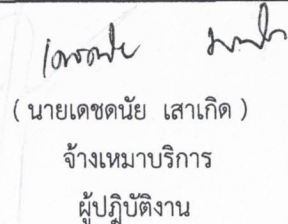 ( นายเดชดนัย เสาเกิด )
จ้างเหมาบริการ
ผู้ปฏิบัติงาน